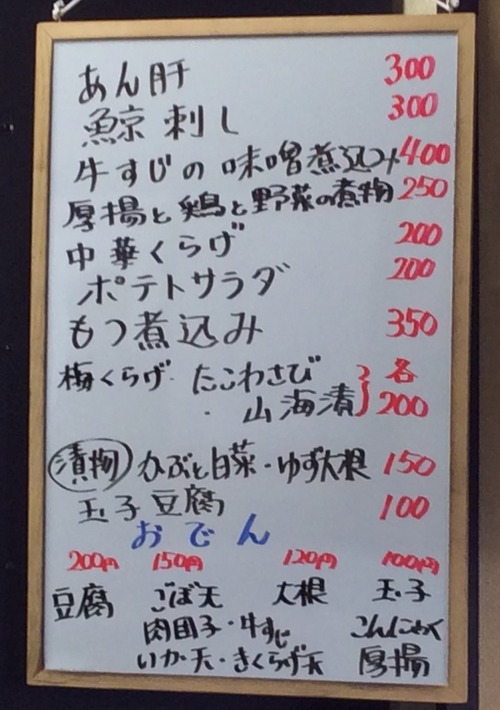 あん肝 300
鯨刺し 300
牛すじの味噌煮込み 400
厚揚と鶏と野菜の煮物 250
中華くらげ 200
ポテトサラダ 200
もつ煮込み 350
梅くらげ・たこわさび 各
・山海漬 200
漬物 かぶと白菜・ゆず大根 150
玉子豆腐 100
おでん
200円 150円 120円 100円
豆腐 ごぼ天 大根 玉子
肉団子・牛すじ こんにゃく
いか天・きくらげ天 厚揚